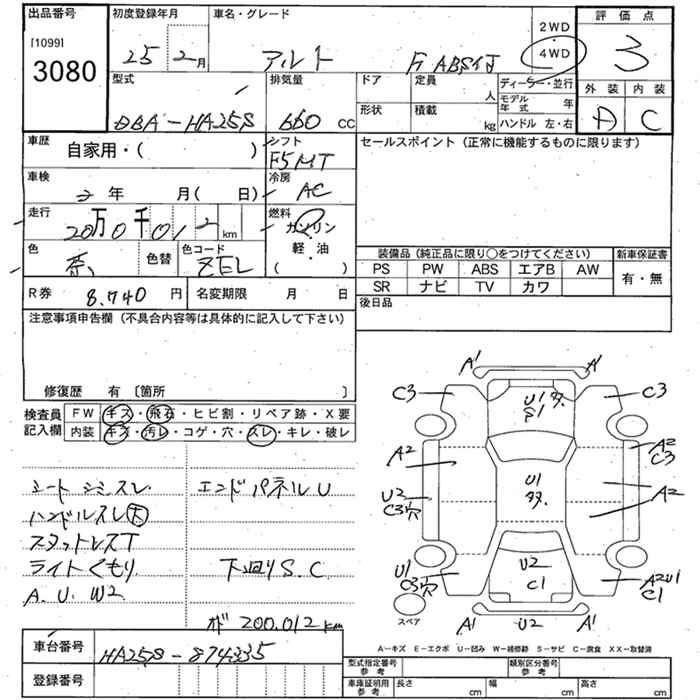 出品番号 初度登録年月 車名・グレード 2WD 評価点
[1099] 3080 25年2月 アルト F ABS付 4WD 3
型式 排気量 ドア 定員 人 ディーラー・並行 外装 内装
DBA-HA25S 660 CC 形状 積載 kg モデル年式 年 A C
ハンドル 左・右
車歴 自家用・( ) シフト F5MT セールスポイント (正常に機能するものに限ります)
車検 年 月( 日) 冷房 AC
走行 20万0千012 km 燃料 ガソリン
色 色替 色コード ZEL 軽・油 ( )
装備品 (純正品に限り○をつけてください) 新車保証書
PS PW ABS エアB AW 有・無
SR ナビ TV カワ
R券 8,740 円 名変期限 月 日 後日品
注意事項申告欄 (不具合内容等は具体的に記入して下さい)
修復歴 有 〔箇所 〕
検査員記入欄 FW キズ・飛石・ヒビ割・リペア跡・X要
内装 キズ・汚レ・コゲ・穴・スレ・キレ・破レ
シートシミスレ エンドパネルU
ハンドルスレ大
スタットレスT
ライトくもり 下廻りS.C
A.U.W2
メーター 200,012 km
A1 A1
C3 U1多 S1 C3
A2 A2 C3
U2 C3穴 U1多. A2
U1 C3穴 U2 C1 A2U1 C1
スペア A1 U2 A1
A-キズ E-エクボ U-凹み W-補修跡 S-サビ C-腐食 XX-取替済
車台番号 HA25S-874335
登録番号
型式指定番号 参考 類別区分番号 参考
車庫証明用 参考 長さ cm 幅 cm 高さ cm